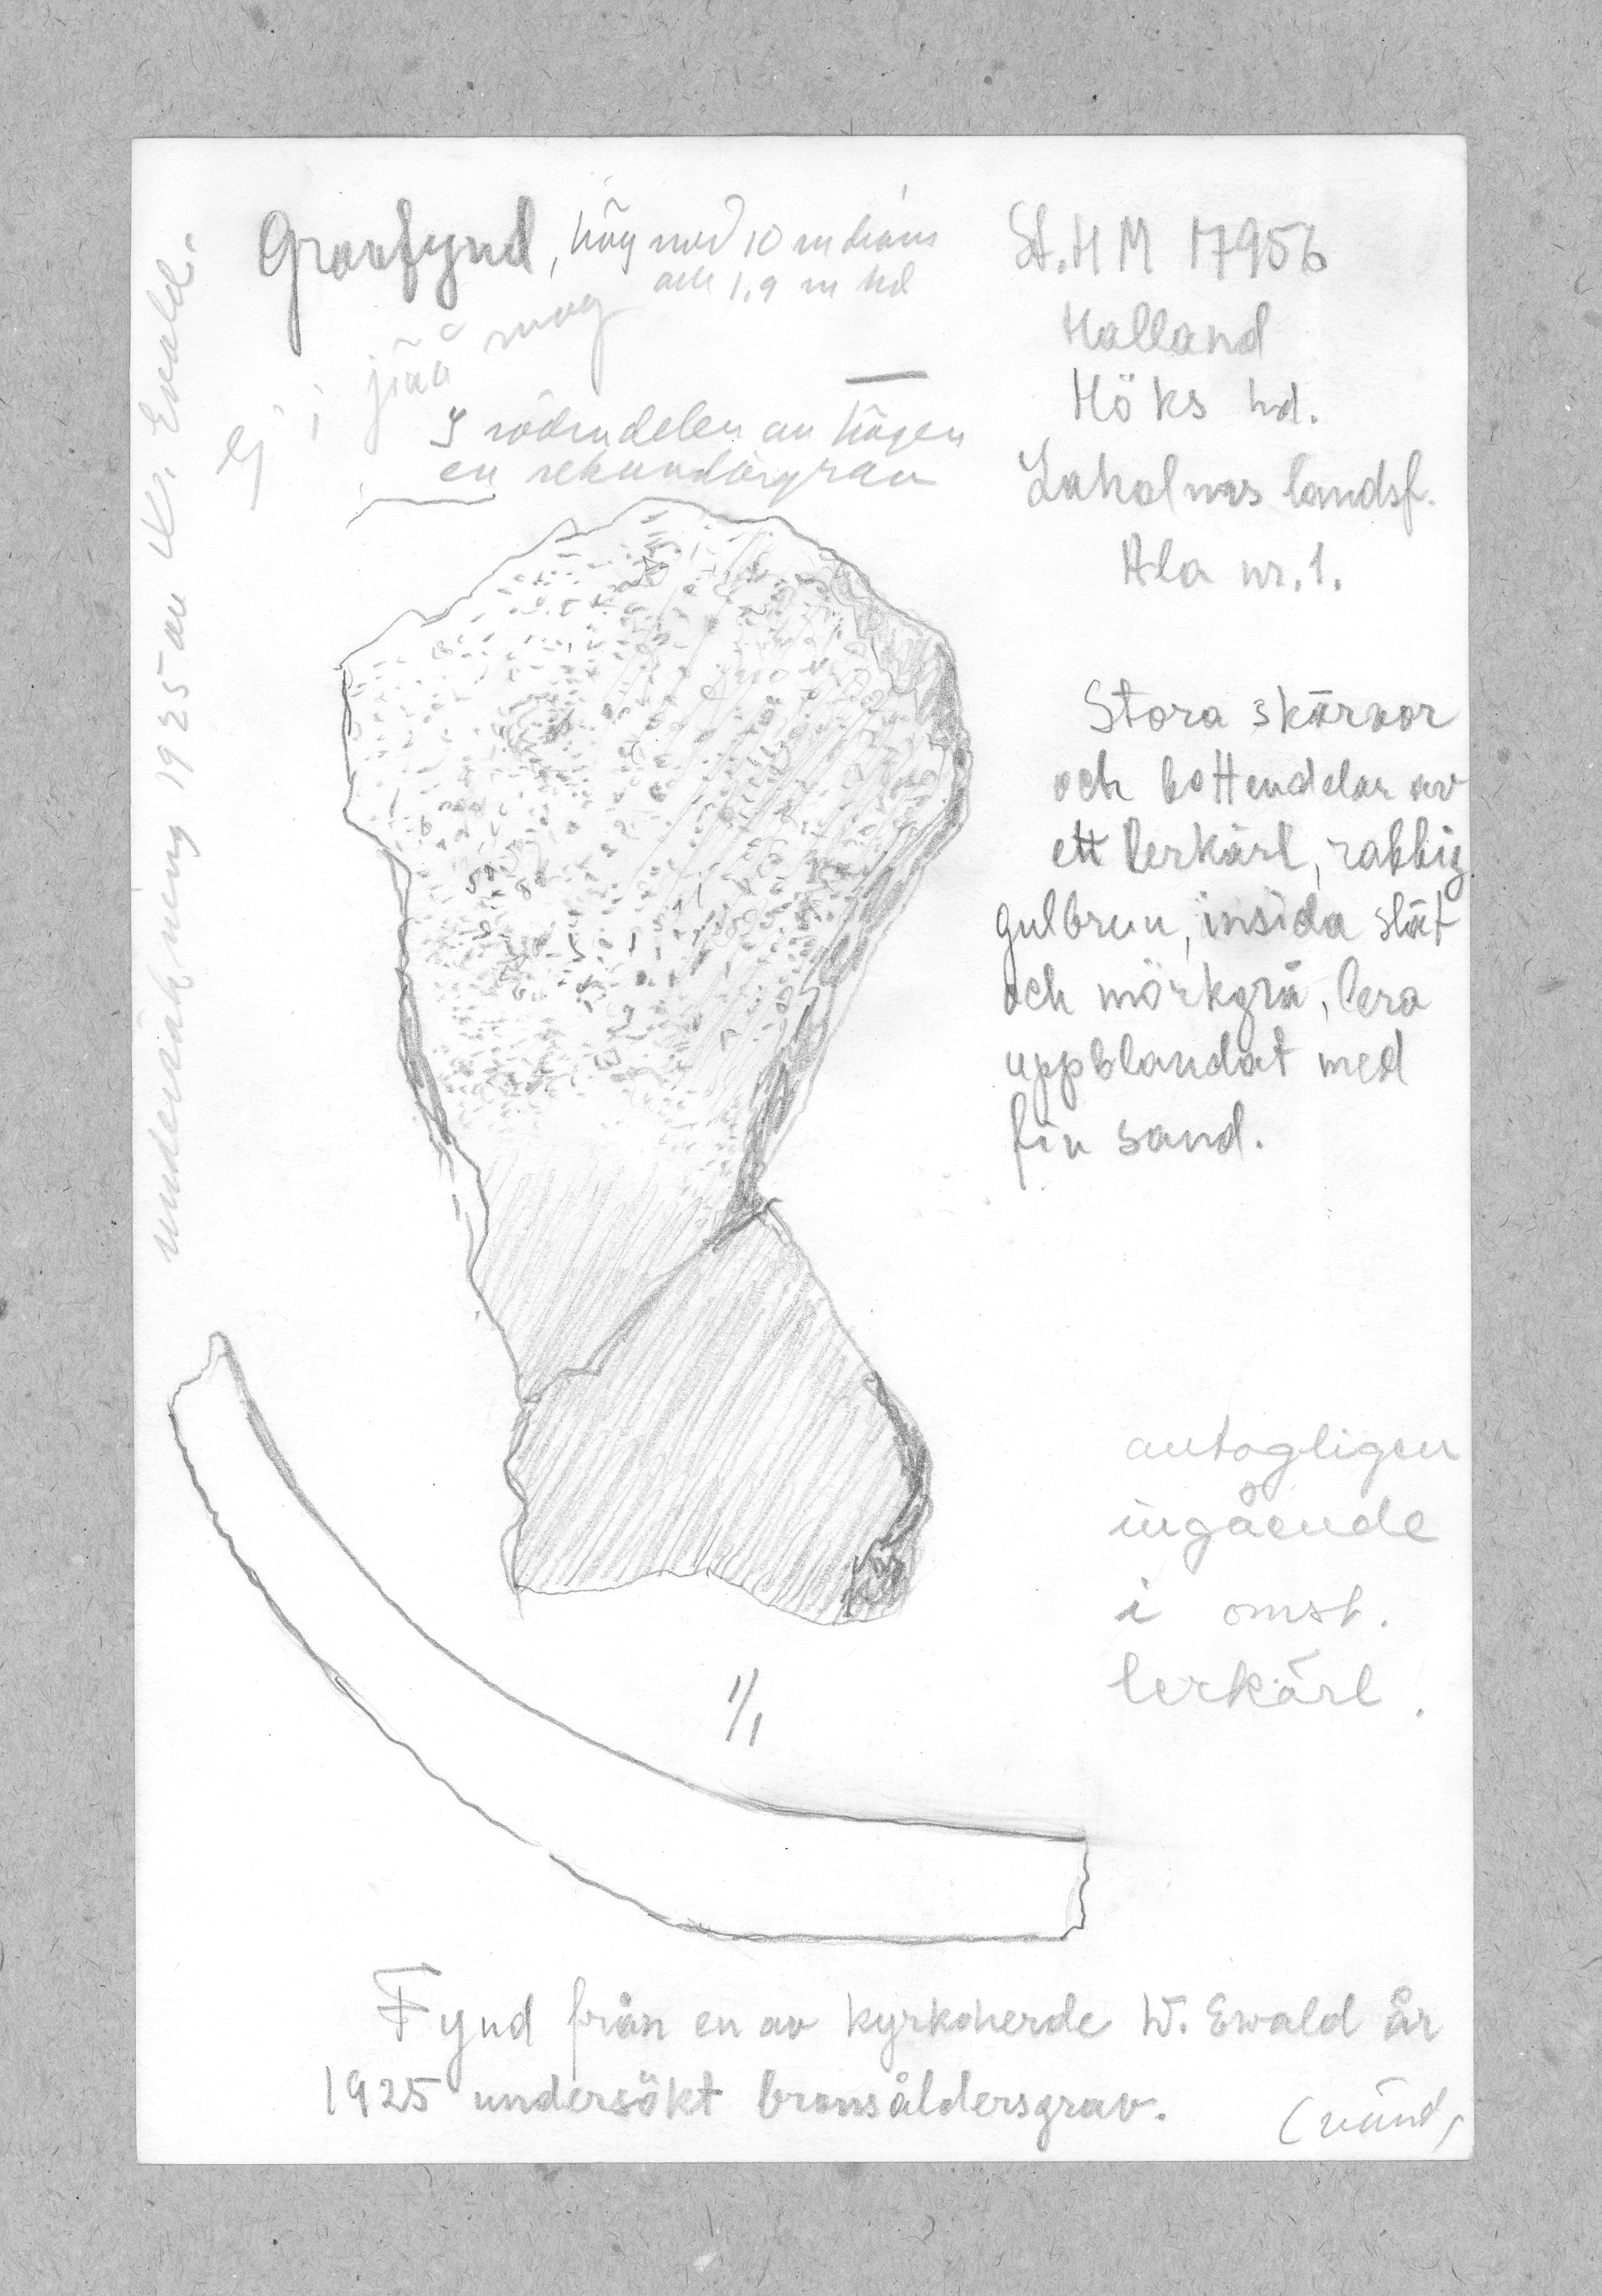 Gravfynd, hög med 10 m diam
och 1,9 m hd
Ej i jäna mog
I södra delen av högen
en sekundärgrav
St. H M 17956
Halland
Höks hd.
Laholms landsf.
Ala nr. 1.
Stora skärvor
och bottendelar av
ett lerkärl, rabbig
gulbrun, insida slät
och mörkgrå, lera
uppblandat med
fin sand.
antagligen
ingående
i omst.
lerkärl.
1/1
Fynd från en av kyrkoherde W. Ewald år
1925 undersökt bronsåldersgrav.
(vänd)
undersökning 1925 av W. Ewald.